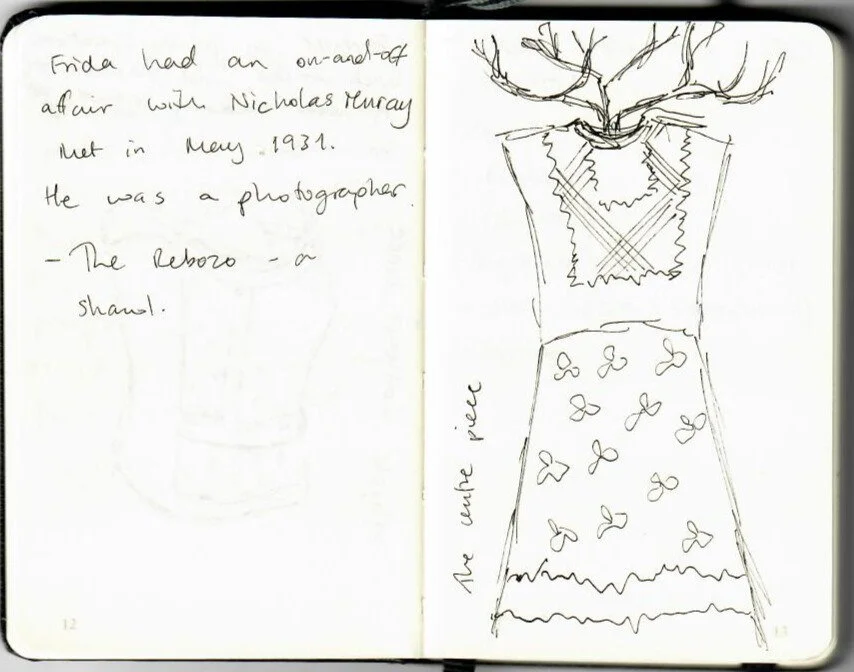 Frida had an on-and-off
affair with Nicholas Muray
Met in May 1931.
He was a photographer.
- The Rebozo - a
shawl.
12
The centre piece
13